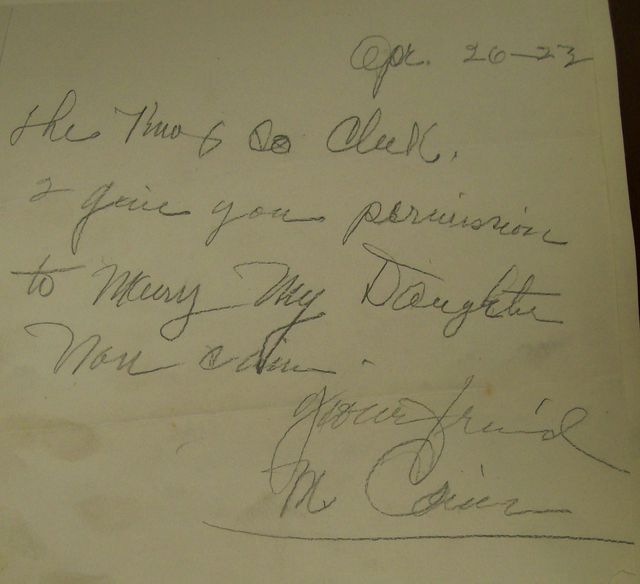 Apr. 26-23
the Knox Co Clerk.
I give you permission
to Marry My Daughter
your friend
M